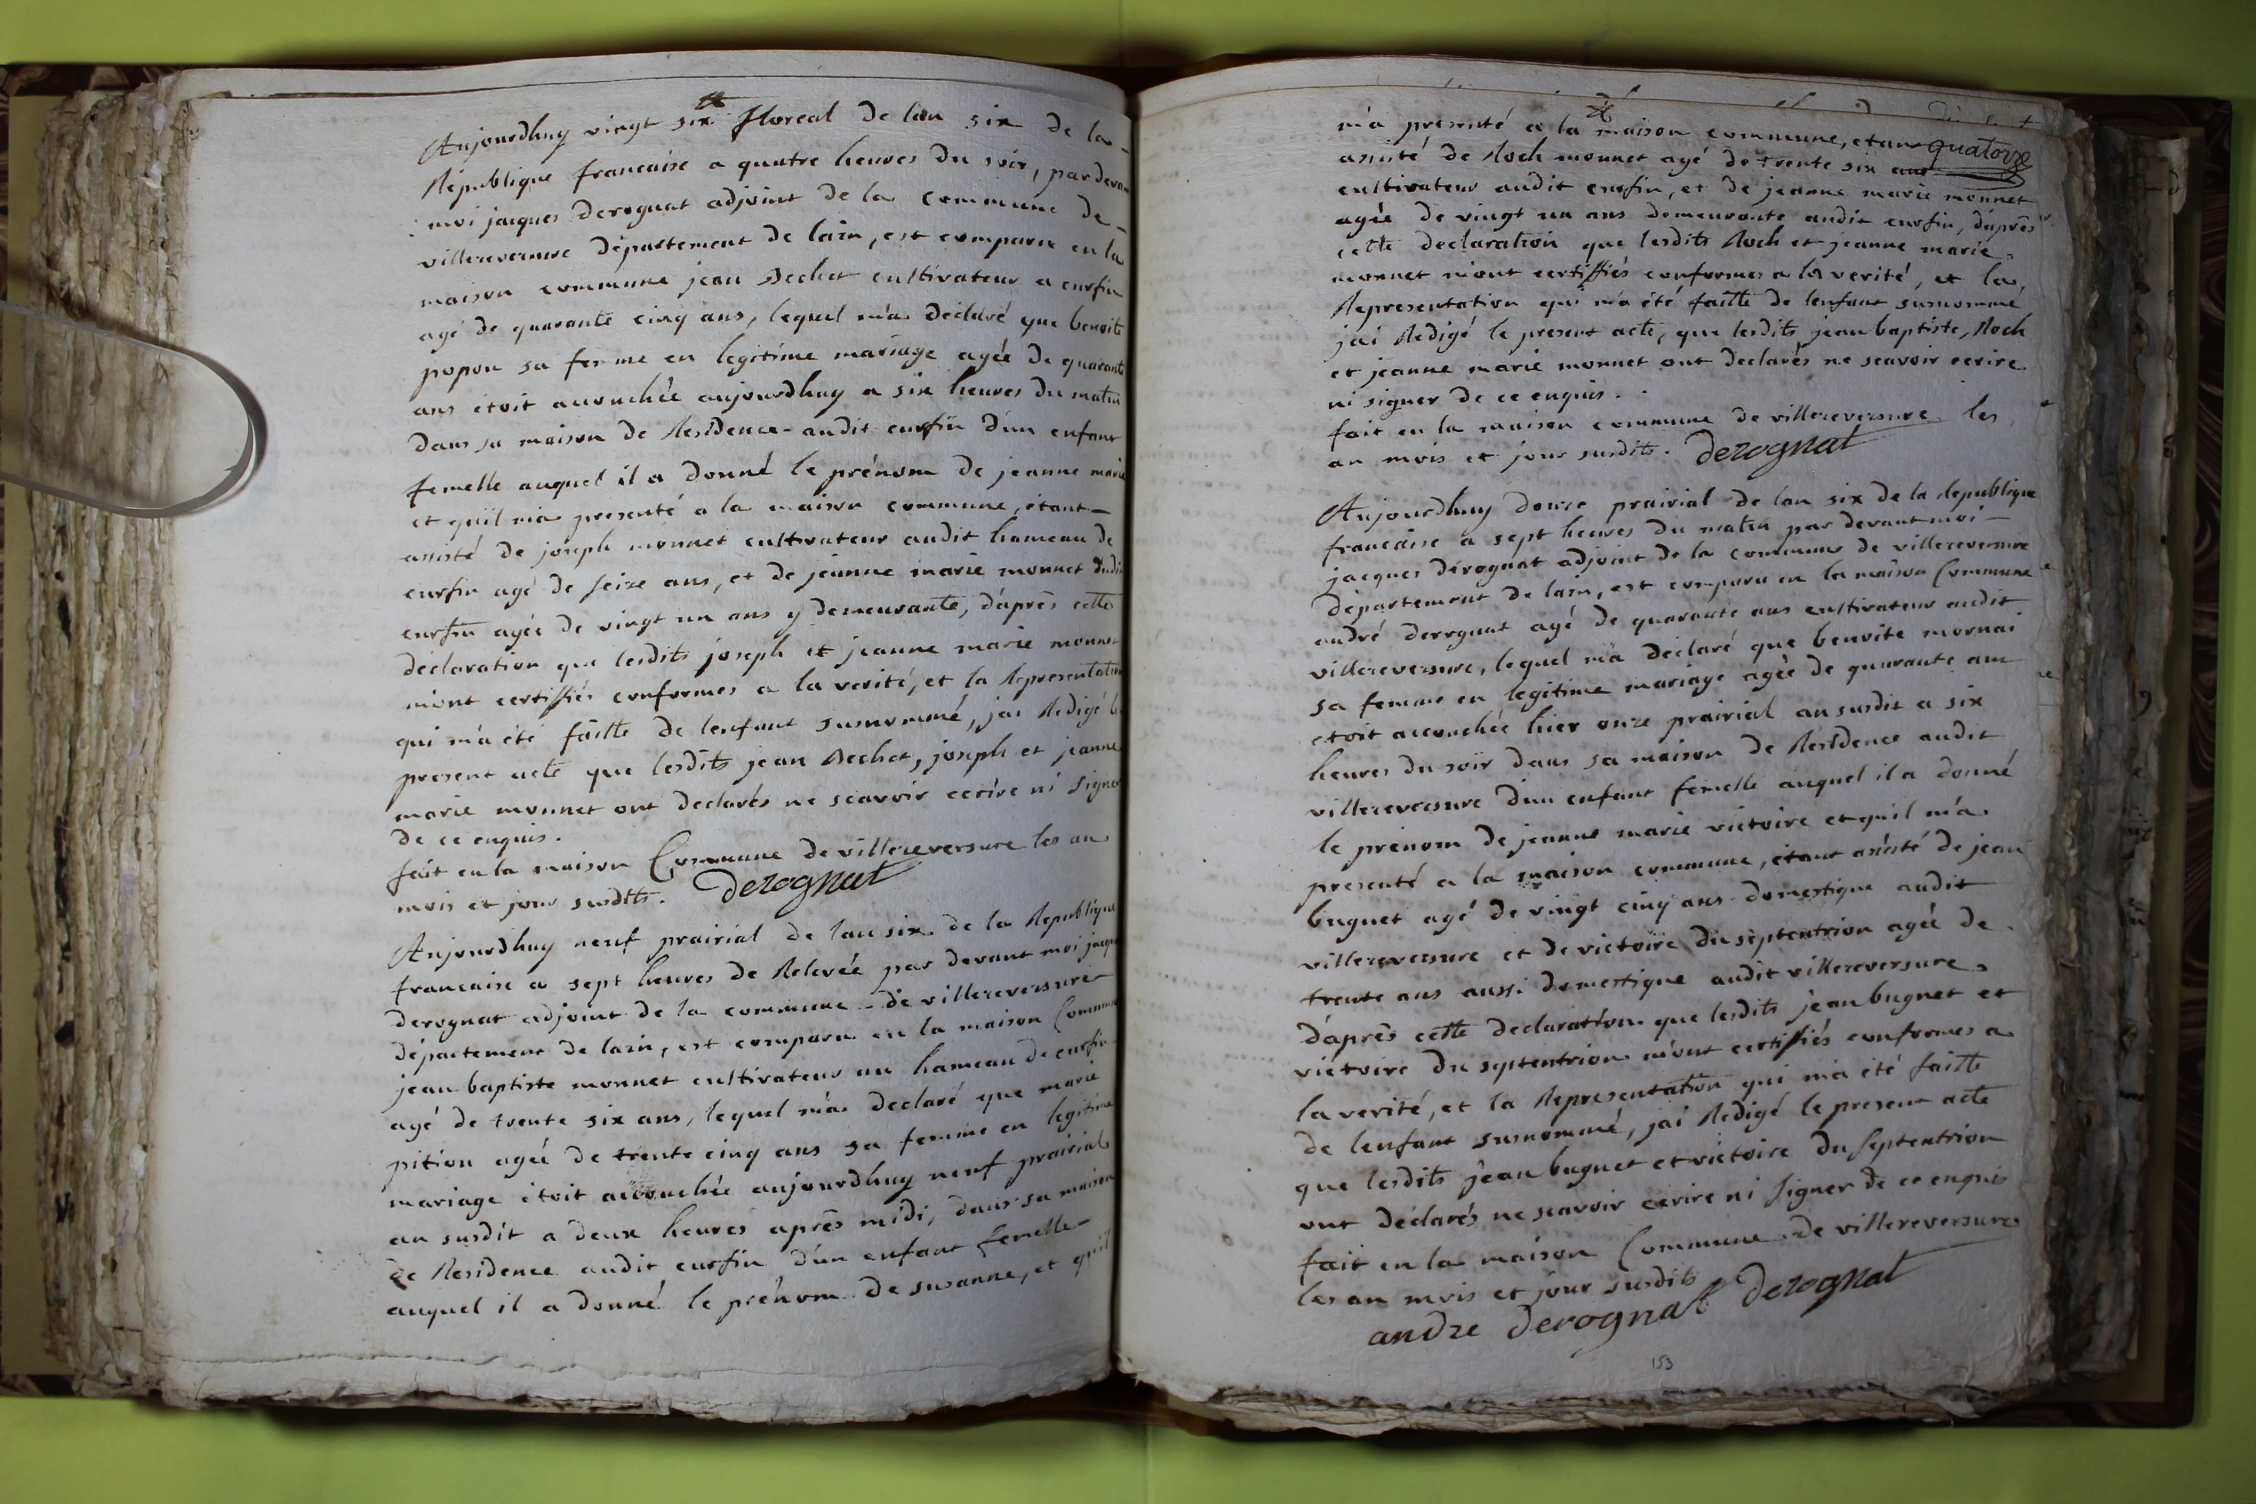 Aujourdhuy vingt six floreal de lan six de la
Republique francaise a quatre heures du soir, par devan
moi jacques derognat adjoint de la commune de
villereversure département de lain, est comparu en la
maison commune jean Bechet cultivateur a curfin
agé de quarante cinq ans, lequel m'a déclaré que benoite
popon sa femme en legitime mariage agée de quarante
ans étoit accouchée aujourdhuy a six heures du matin
dans sa maison de Residence audit curfin d'un enfant
femelle auquel il a donné le prénom de jeanne marie
et qu'il m'a presenté a la maison commune, étant
assisté de joseph monnet cultivateur audit hameau de
curfin agé de seize ans, et de jeanne marie monnet dudi
curfin agée de vingt un ans y demeurante, d'après cette
déclaration que lesdits joseph et jeanne marie monnet
m'ont certiffiés conformes a la verité, et la Representation
qui m'a été faitte de lenfant susnommé, j'ai Redigé le
present acte que lesdits jean Bechet, joseph et jeanne
marie monnet ont declarés ne scavoir ecrire ni signer
de ce enquis.
fait en la maison Commune de villereversure les an
mois et jour susdits. derognat
Aujourdhuy neuf prairial de lan six de la Republique
francaise a sept heures de Relevée par devant moi jacque
derognat adjoint de la commune de villereversure
département de lain, est comparu en la maison Commune
jean baptiste monnet cultivateur au hameau de curfin
agé de trente six ans, lequel m'a déclaré que marie
pition agée de trente cinq ans sa femme en legitime
mariage étoit accouchée aujourdhuy neuf prairial
an susdit a deux heures après midi, dans sa maison
de Residence audit curfin d'un enfant femelle
auquel il a donné le prénom de susanne, et qu'il
quatorze
m'a presenté a la maison commune, etant
assisté de Roch monnet agé de trente six ans
cultivateur audit curfin, et de jeanne marie monnet
agée de vingt un ans demeurante audit curfin, d'après
cette declaration que lesdits Roch et jeanne marie
monnet m'ont certiffiés conformes a la verité, et la
Representation qui m'a été faitte de lenfant susnommé
j'ai Redigé le present acte, que lesdits jean baptiste, Roch
et jeanne marie monnet ont declarés ne scavoir ecrire
ni signer de ce enquis.
fait en la maison commune de villereversure les
an mois et jour susdits. derognat
Aujourdhuy douze prairial de lan six de la Republique
francaise a sept heures du matin par devant moi
jacques derognat adjoint de la commune de villereversure
département de lain, est comparu en la maison Commune
andré derognat agé de quarante ans cultivateur audit
villereversure, lequel m'a déclaré que benoite mornai
sa femme en legitime mariage agée de quarante ans
etoit accouchée hier onze prairial an susdit a six
heures du soir dans sa maison de Residence audit
villereversure d'un enfant femelle auquel il a donné
le prénom de jeanne marie victoire et qu'il m'a
presenté a la maison commune, étant assisté de jean
buguet agé de vingt cinq ans domestique audit
villereversure et de victoire du septentrion agée de
trente ans aussi domestique audit villereversure,
d'après cette declaration que lesdits jean buguet et
victoire du septentrion m'ont certiffiés conformes a
la verité, et la Representation qui m'a été faitte
de lenfant susnommé, j'ai Redigé le present acte
que lesdits jean buguet et victoire du septentrion
ont déclarés ne scavoir ecrire ni signer de ce enquis
fait en la maison Commune de villereversure
les an mois et jour susdits
andre derognat derognat
153